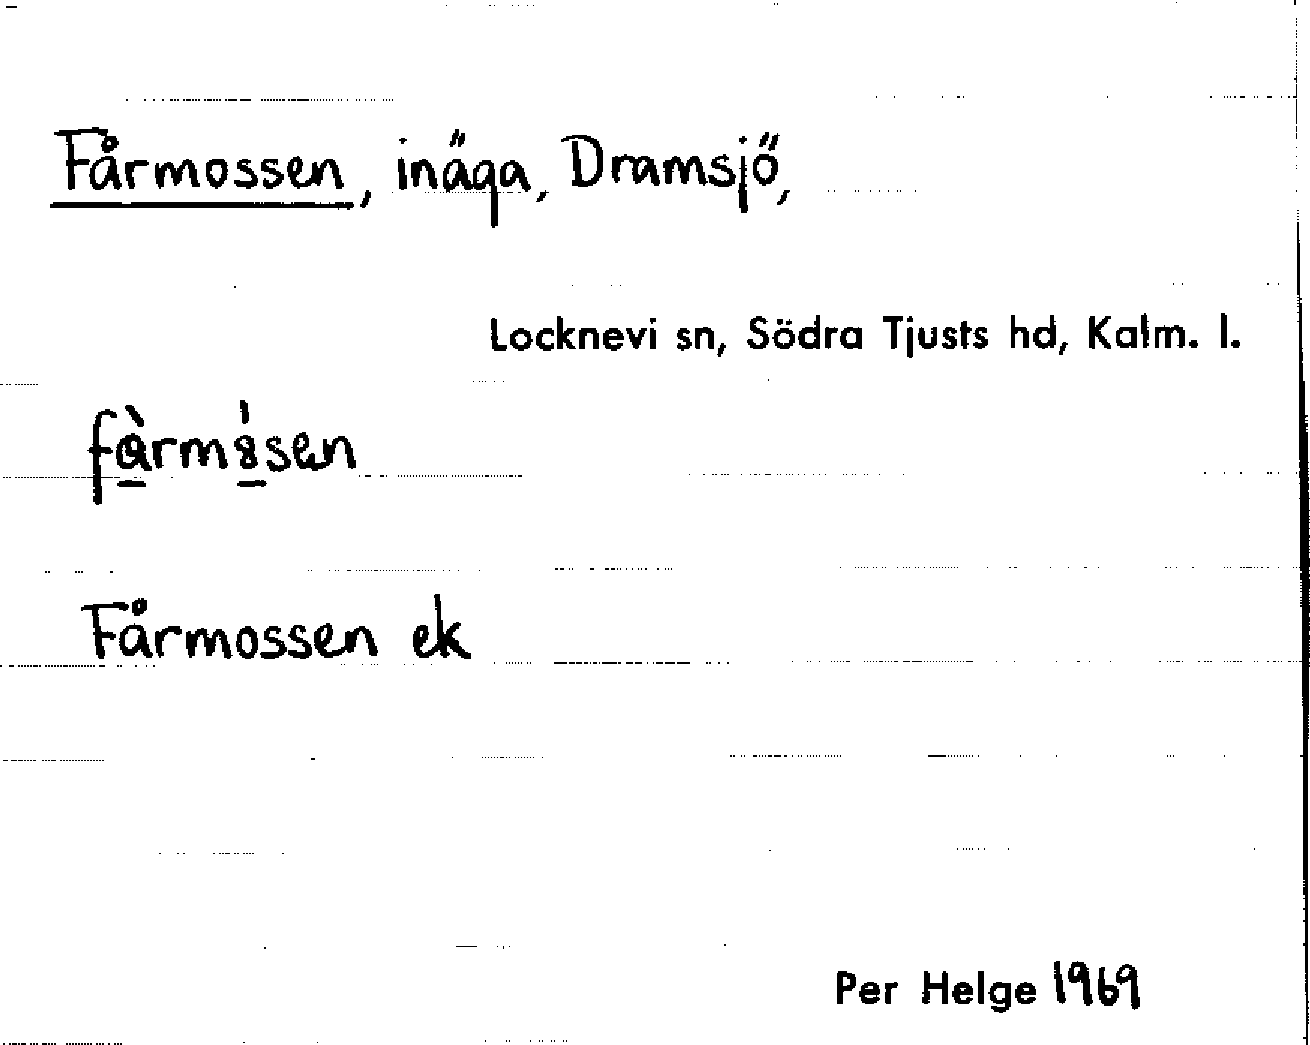 Fårmossen, inäga, Dramsjö,
Locknevi sn, Södra Tjusts hd, Kalm. l.
Fårmossen ek
Per Helge 1969